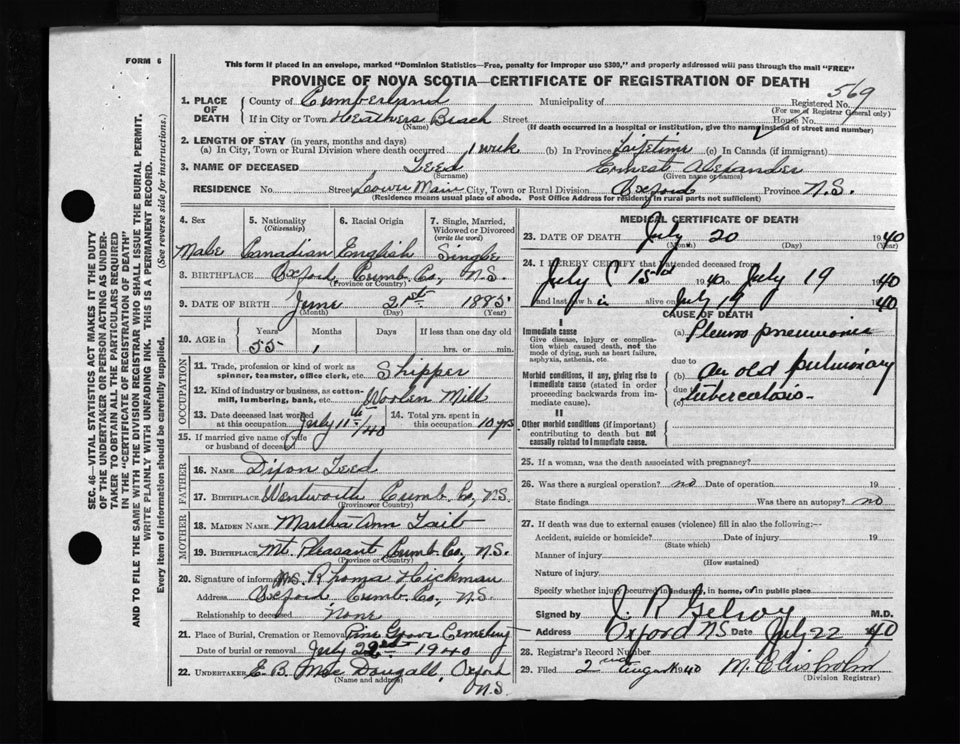 FORM 6
This form if placed in an envelope, marked "Dominion Statistics—Free, penalty for improper use $300," and properly addressed will pass through the mail "FREE"
PROVINCE OF NOVA SCOTIA—CERTIFICATE OF REGISTRATION OF DEATH
569
1. PLACE OF DEATH
County of Cumberland Municipality of Registered No.
(For use of Registrar General only)
If in City or Town Heathers Beach Street House No.
(Name) (If death occurred in a hospital or institution, give the name instead of street and number)
2. LENGTH OF STAY (in years, months and days)
(a) In City, Town or Rural Division where death occurred 1 week (b) In Province Lifetime (c) In Canada (if immigrant)
3. NAME OF DECEASED Teed Ernest Alexander
(Surname) (Given name or names)
RESIDENCE No. Street Lower Main City, Town or Rural Division Oxford Province N.S.
(Residence means usual place of abode. Post Office Address for residents in rural parts not sufficient)
4. Sex Male
5. Nationality (Citizenship) Canadian
6. Racial Origin English
7. Single, Married, Widowed or Divorced (write the word) Single
8. BIRTHPLACE Oxford, Cumb. Co., N.S.
(Province or Country)
9. DATE OF BIRTH June 21st 1885
(Month) (Day) (Year)
10. AGE Years Months Days If less than one day old
55 1 hrs. or min.
OCCUPATION
11. Trade, profession or kind of work as spinner, teamster, office clerk, etc. Shipper
12. Kind of industry or business, as cotton-mill, lumbering, bank, etc. Woolen Mill
13. Date deceased last worked at this occupation July 11th/40
14. Total yrs. spent in this occupation 10 yrs
15. If married give name of wife or husband of deceased
FATHER
16. NAME Dixon Teed
17. BIRTHPLACE Wentworth Cumb. Co., N.S.
(Province or Country)
MOTHER
18. MAIDEN NAME Martha Ann Tait
19. BIRTHPLACE Mt. Pleasant Cumb. Co., N.S.
(Province or Country)
20. Signature of informant Mrs. Rhoma Hickman
Address Oxford, Cumb. Co., N.S.
Relationship to deceased None
21. Place of Burial, Cremation or Removal Pine Grove Cemetery
Date of burial or removal July 22nd 1940
22. UNDERTAKER E. B. MacDougall, Oxford N.S.
(Name and address)
MEDICAL CERTIFICATE OF DEATH
23. DATE OF DEATH July 20 1940
(Month) (Day) (Year)
24. I HEREBY CERTIFY that I attended deceased from
July 15 1940 July 19 1940
and last saw h is alive on July 19 1940
CAUSE OF DEATH
I
Immediate cause
Give disease, injury or complication which caused death, not the mode of dying, such as heart failure, asphyxia, asthenia, etc.
(a) Pleuro pneumonia
due to
Morbid conditions, if any, giving rise to immediate cause (stated in order proceeding backwards from immediate cause).
(b) An old pulmonary
due to
(c) tuberculosis
II
Other morbid conditions (if important) contributing to death but not causally related to immediate cause.
25. If a woman, was the death associated with pregnancy?
26. Was there a surgical operation? no Date of operation 19
State findings Was there an autopsy? no
27. If death was due to external causes (violence) fill in also the following:—
Accident, suicide or homicide? Date of injury 19
(State which)
Manner of injury
(How sustained)
Nature of injury
Specify whether injury occurred in industry, in home, or in public place
Signed by J. R. Gilroy M.D.
Address Oxford NS Date July 22 1940
28. Registrar's Record Number
29. Filed 2nd August 1940 M. Chisholm
(Division Registrar)
SEC. 46—VITAL STATISTICS ACT MAKES IT THE DUTY
OF THE UNDERTAKER OR PERSON ACTING AS UNDER-
TAKER TO OBTAIN ALL THE PARTICULARS REQUIRED
IN THE "CERTIFICATE OF REGISTRATION OF DEATH"
AND TO FILE THE SAME WITH THE DIVISION REGISTRAR WHO SHALL ISSUE THE BURIAL PERMIT.
WRITE PLAINLY WITH UNFADING INK. THIS IS A PERMANENT RECORD.
Every item of information should be carefully supplied. (See reverse side for instructions.)